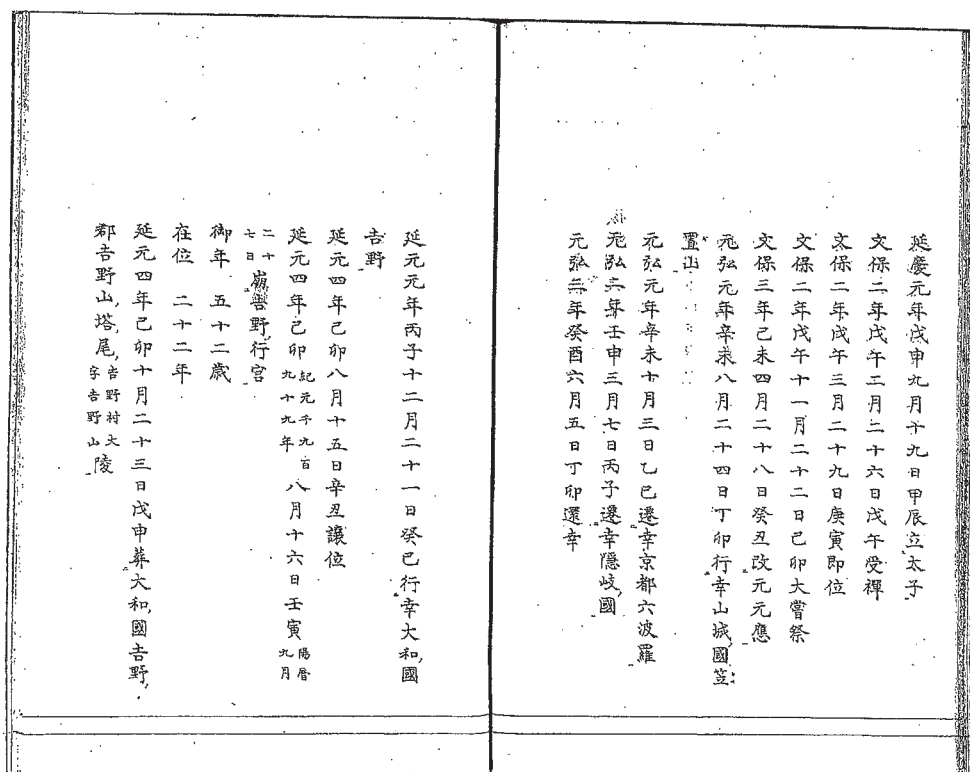 延慶元年戊申九月十九日甲辰立太子
文保二年戊午二月二十六日戊午受禪
文保二年戊午三月二十九日庚寅即位
文保二年戊午十一月二十二日己卯大嘗祭
文保三年己未四月二十八日癸丑改元元應
元弘元年辛未八月二十四日丁卯行幸山城國笠
置山
元弘元年辛未十月三日乙巳遷幸京都六波羅
元弘二年壬申三月七日丙子遷幸隱岐國
元弘三年癸酉六月五日丁卯還幸
延元元年丙子十二月二十一日癸巳行幸大和國
吉野
延元四年己卯八月十五日辛丑讓位
延元四年己卯紀元千九百九十九年八月十六日壬寅陽曆九月
二十七日崩吉野行宮
御年 五十二歲
在位 二十二年
延元四年己卯十月二十三日戊申葬大和國吉野
郡吉野山塔尾吉野村大字吉野山陵